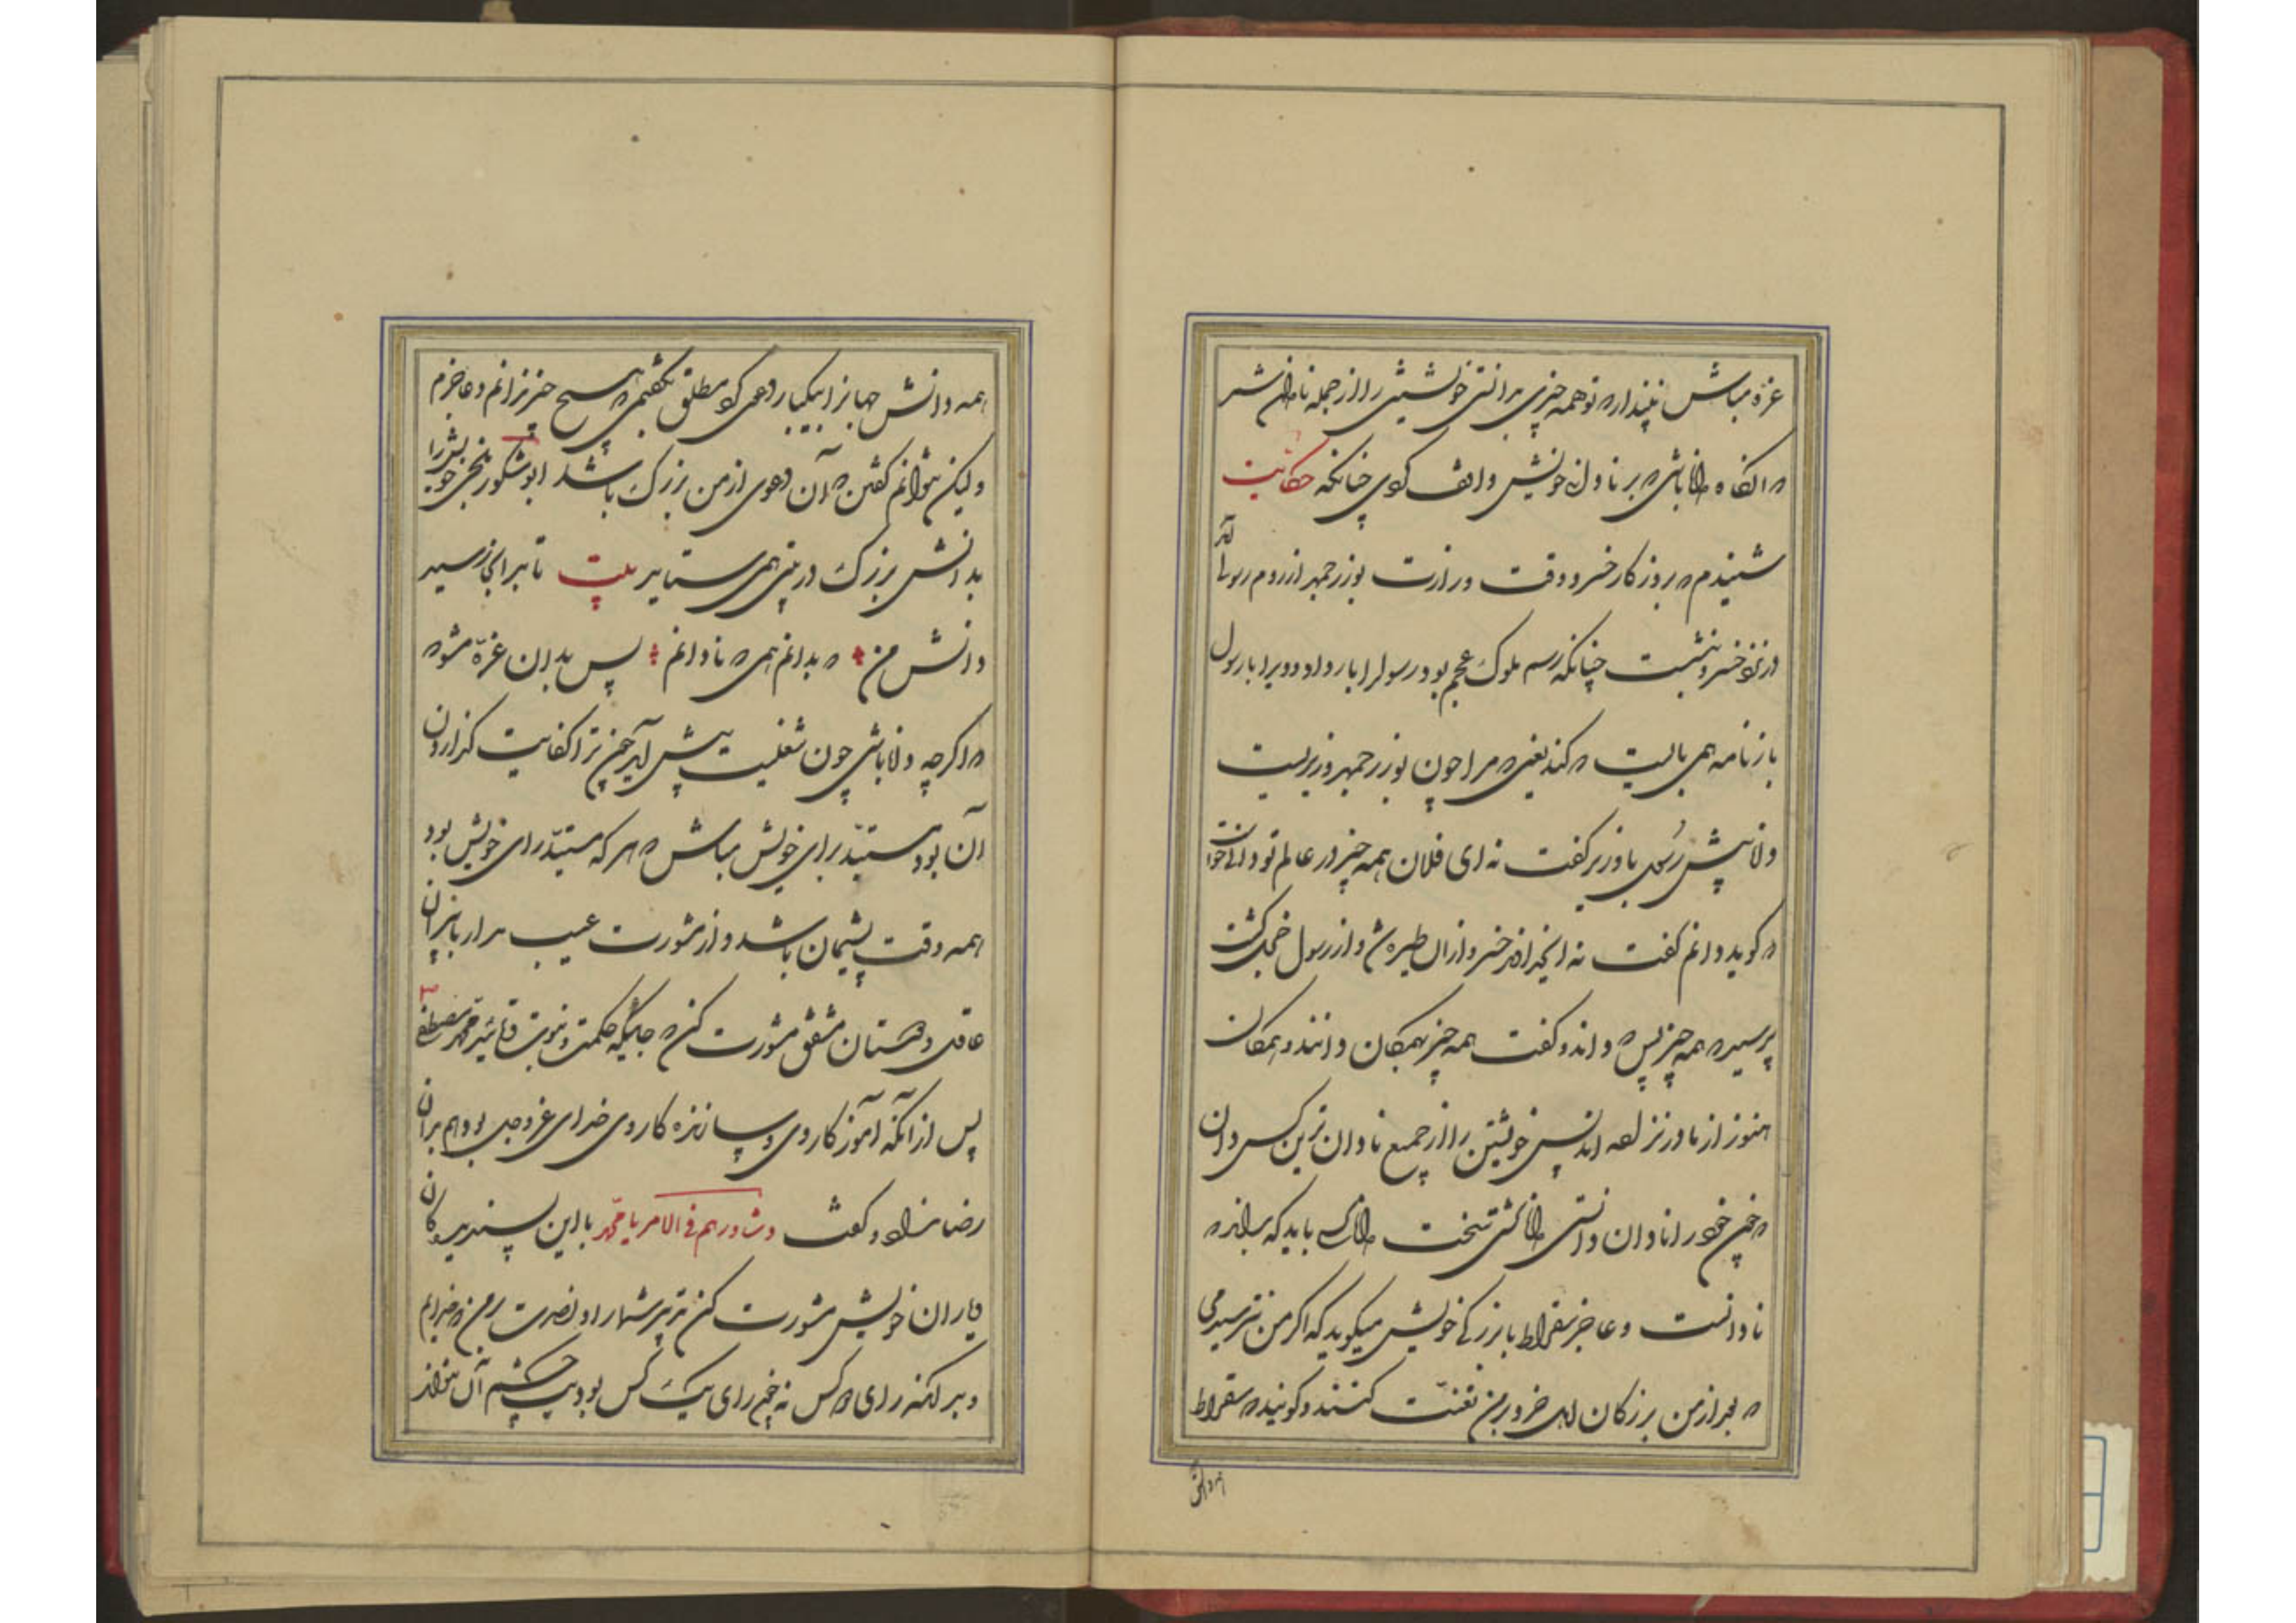 غره مباش و مپندار که تو همه چیزی بدانستی خویشتن را از جمله نادانان شمر
که آنگاه دانا باشی که بر نادانی خویش واقف گردی چنانکه حکایت
شنیدم که بروزگار خسرو وقت وزارت بوزرجمهر از روم رسولی آمد
خسرو بنشست چنانکه رسم ملوک عجم بود و رسول را بار داد و ویرا با رسول
بارنامه همی بایست که کند یعنی که مرا چون بوزرجمهر وزیریست
پیش رسول با وزیر گفت که ای فلان همه چیز در عالم تو دانی خواست
که گوید دانم گفت نه ای خسرو از آن طیره شد و از رسول خجل گشت
پرسید که همه چیز پس که داند گفت همه چیز همگان دانند و همگان
هنوز از مادر نزاده‌اند پس خویشتن را از جمیع نادان‌ترین کس دان
که چون خود را نادان دانستی دانا گشتی سخت دانا کسی باید که بداند که
نادانست و عاجز سقراط با بزرگی خویش میگوید که اگر من نترسیدمی
که بعد از من بزرگان اهل خرد بر من تعنت کنند و گویند که سقراط
همه دانش
همه دانش جهانرا بیکبار دعوی کرد مطلق بگفتمی که هیچ چیز ندانم و عاجزم
ولیکن نتوانم گفتن که آن دعوی از من بزرگ باشد ابوشکور بلخی خویش را
بدانش بزرگ در بیتی همی ستاید بیت تا بدانجا رسید
دانش من که بدانم همی که نادانم پس بدان غره مشو که
اگرچه دانا باشی چون شغلیت پیش آید هرچند ترا کفایت گزاردن
آن بود مستبد برای خویش مباش که هر که مستبد رای خویش بود
همه وقت پشیمان باشد و از مشورت عیب مدار با پیران
عاقل و دوستان مشفق مشورت کن که جایگه حکمت و نبوت و تأیید محمد مصطفی
پس از آنکه آموزگار وی و سازنده کار وی خدای عز و جل بود هم بدان
رضا نداد و گفت وشاورهم فی الامر یا محمد با این پسندیدگان
و یاران خویش مشورت کن تدبیر شما را و نصرت از من که خدایم
و بدانکه رای دو کس نه چون رای یک کس بود یک چشم آن نتواند